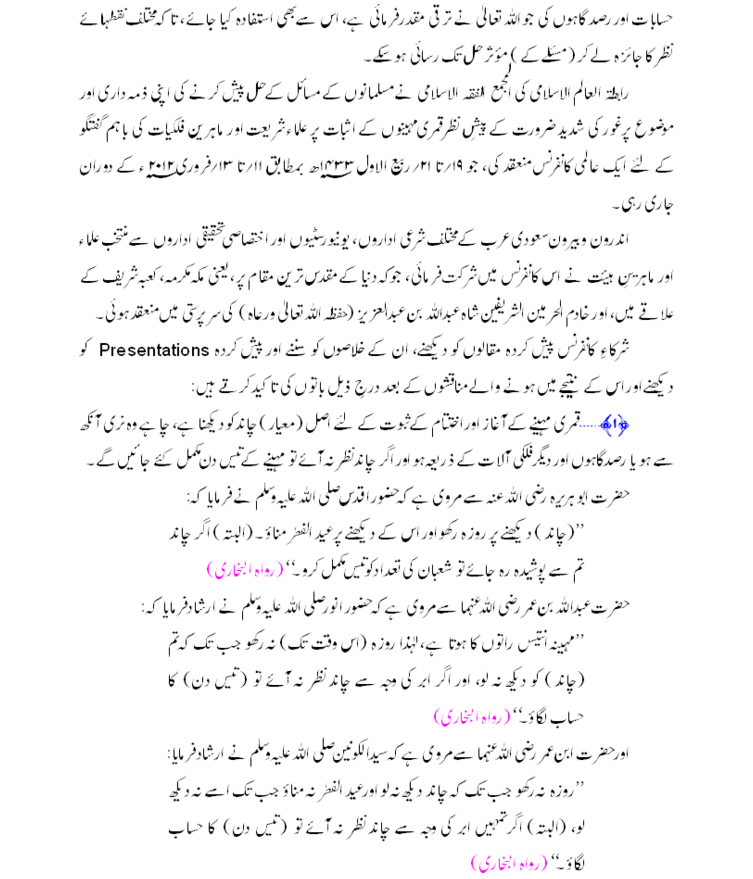 حسابات اور رصدگاہوں کی جو اللہ تعالیٰ نے ترقی مقدر فرمائی ہے، اس سے بھی استفادہ کیا جائے، تاکہ مختلف نقطہائے
نظر کا جائزہ لے کر (مسئلے کے) مؤثر حل تک رسائی ہوسکے۔
رابطۃ العالم الاسلامی کی المجمع الفقہ الاسلامی نے مسلمانوں کے مسائل کے حل پیش کرنے کی اپنی ذمہ داری اور
موضوع پر غور کی شدید ضرورت کے پیشِ نظر قمری مہینوں کے اثبات پر علماء شریعت اور ماہرین فلکیات کی باہم گفتگو
کے لئے ایک عالمی کانفرنس منعقد کی، جو ۱۹/تا ۲۱/ ربیع الاول ۱۴۳۳ھ بمطابق ۱۱/تا ۱۳/فروری ۲۰۱۲ء کے دوران
جاری رہی۔
اندرون و بیرون سعودی عرب کے مختلف شرعی اداروں، یونیورسٹیوں اور اختصاصی تحقیقی اداروں سے منتخب علماء
اور ماہرینِ ہیئت نے اس کانفرنس میں شرکت فرمائی، جو کہ دنیا کے مقدس ترین مقام پر، یعنی مکہ مکرمہ، کعبہ شریف کے
علاقے میں، اور خادم الحرمین الشریفین شاہ عبداللہ بن عبدالعزیز (حفظہ اللہ تعالیٰ ورعاہ) کی سرپرستی میں منعقد ہوئی۔
شرکاءِ کانفرنس پیش کردہ مقالوں کو دیکھنے، ان کے خلاصوں کو سننے اور پیش کردہ Presentations کو
دیکھنے اور اس کے نتیجے میں ہونے والے مناقشوں کے بعد درجِ ذیل باتوں کی تاکید کرتے ہیں:
﴿۱﴾......قمری مہینے کے آغاز اور اختتام کے ثبوت کے لئے اصل (معیار) چاند کو دیکھنا ہے، چاہے وہ نری آنکھ
سے ہو یا رصدگاہوں اور دیگر فلکی آلات کے ذریعہ ہو اور اگر چاند نظر نہ آئے تو مہینے کے تیس دن مکمل کئے جائیں گے۔
حضرت ابوہریرہ رضی اللہ عنہ سے مروی ہے کہ حضور اقدس صلی اللہ علیہ وسلم نے فرمایا کہ:
’’(چاند) دیکھنے پر روزہ رکھو اور اس کے دیکھنے پر عید الفطر مناؤ۔ (البتہ) اگر چاند
تم سے پوشیدہ رہ جائے تو شعبان کی تعداد کو تیس مکمل کرو۔‘‘ (رواہ البخاری)
حضرت عبداللہ بن عمر رضی اللہ عنہما سے مروی ہے کہ حضور انور صلی اللہ علیہ وسلم نے ارشاد فرمایا کہ:
’’مہینہ انتیس راتوں کا ہوتا ہے، لہٰذا روزہ (اس وقت تک) نہ رکھو جب تک کہ تم
(چاند) کو دیکھ نہ لو، اور اگر ابر کی وجہ سے چاند نظر نہ آئے تو (تیس دن) کا
حساب لگاؤ۔‘‘ (رواہ البخاری)
اور حضرت ابن عمر رضی اللہ عنہما سے مروی ہے کہ سید الکونین صلی اللہ علیہ وسلم نے ارشاد فرمایا:
’’روزہ نہ رکھو جب تک کہ چاند دیکھ نہ لو اور عید الفطر نہ مناؤ جب تک اسے نہ دیکھ
لو، (البتہ) اگر تمہیں ابر کی وجہ سے چاند نظر نہ آئے تو (تیس دن) کا حساب
لگاؤ۔‘‘ (رواہ البخاری)